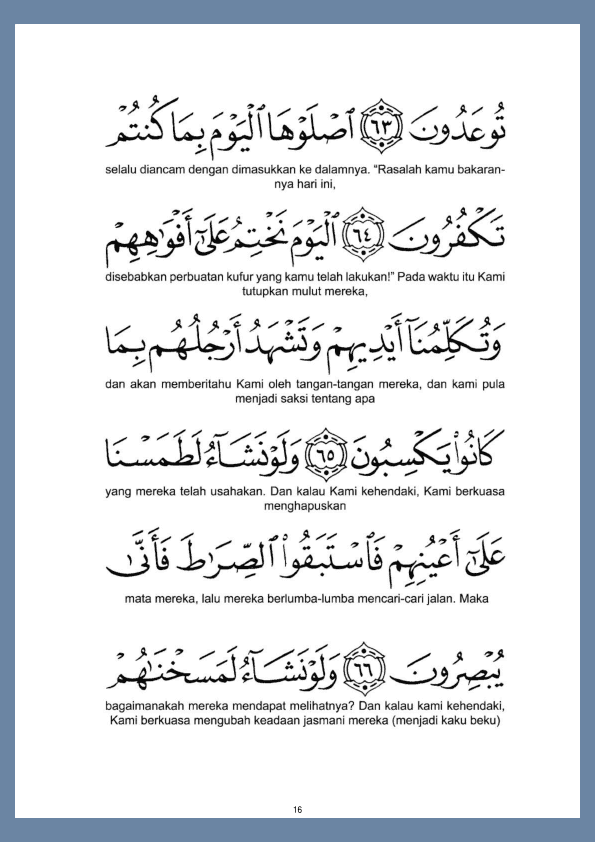 تُوعَدُونَ ٦٣ ٱصْلَوْهَا ٱلْيَوْمَ بِمَا كُنتُمْ
selalu diancam dengan dimasukkan ke dalamnya. “Rasalah kamu bakaran-
nya hari ini,
تَكْفُرُونَ ٦٤ ٱلْيَوْمَ نَخْتِمُ عَلَىٰٓ أَفْوَٰهِهِمْ
disebabkan perbuatan kufur yang kamu telah lakukan!” Pada waktu itu Kami
tutupkan mulut mereka,
وَتُكَلِّمُنَآ أَيْدِيهِمْ وَتَشْهَدُ أَرْجُلُهُم بِمَا
dan akan memberitahu Kami oleh tangan-tangan mereka, dan kami pula
menjadi saksi tentang apa
كَانُوا۟ يَكْسِبُونَ ٦٥ وَلَوْ نَشَآءُ لَطَمَسْنَا
yang mereka telah usahakan. Dan kalau Kami kehendaki, Kami berkuasa
menghapuskan
عَلَىٰٓ أَعْيُنِهِمْ فَٱسْتَبَقُوا۟ ٱلصِّرَٰطَ فَأَنَّىٰ
mata mereka, lalu mereka berlumba-lumba mencari-cari jalan. Maka
يُبْصِرُونَ ٦٦ وَلَوْ نَشَآءُ لَمَسَخْنَٰهُمْ
bagaimanakah mereka mendapat melihatnya? Dan kalau kami kehendaki,
Kami berkuasa mengubah keadaan jasmani mereka (menjadi kaku beku)
16